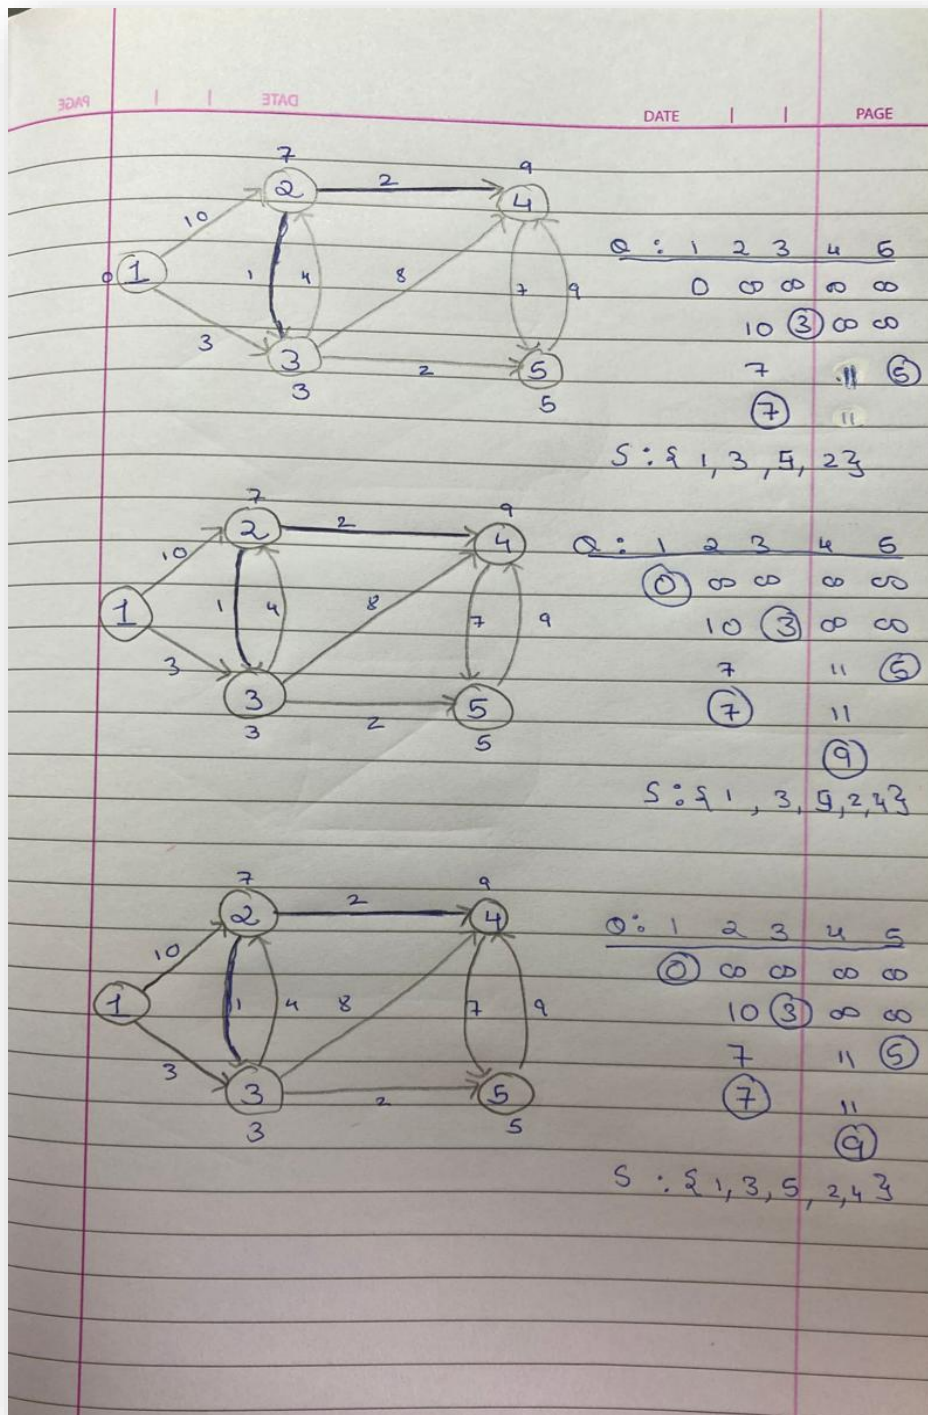 PAGE | | DATE
DATE | | PAGE
7 9
2 2 4
10
0 1 1 4 8 7 9
3
3 2 5
3 5
Q : 1 2 3 4 5
0 ∞ ∞ ∞ ∞
10 3 ∞ ∞
7 11 5
7 11
S : { 1, 3, 5, 2 }
7 9
2 2 4
10
1 1 4 8 7 9
3
3 2 5
3 5
Q : 1 2 3 4 5
0 ∞ ∞ ∞ ∞
10 3 ∞ ∞
7 11 5
7 11
9
S : { 1, 3, 5, 2, 4 }
7 9
2 2 4
10
1 1 4 8 7 9
3
3 2 5
3 5
Q : 1 2 3 4 5
0 ∞ ∞ ∞ ∞
10 3 ∞ ∞
7 11 5
7 11
9
S : { 1, 3, 5, 2, 4 }